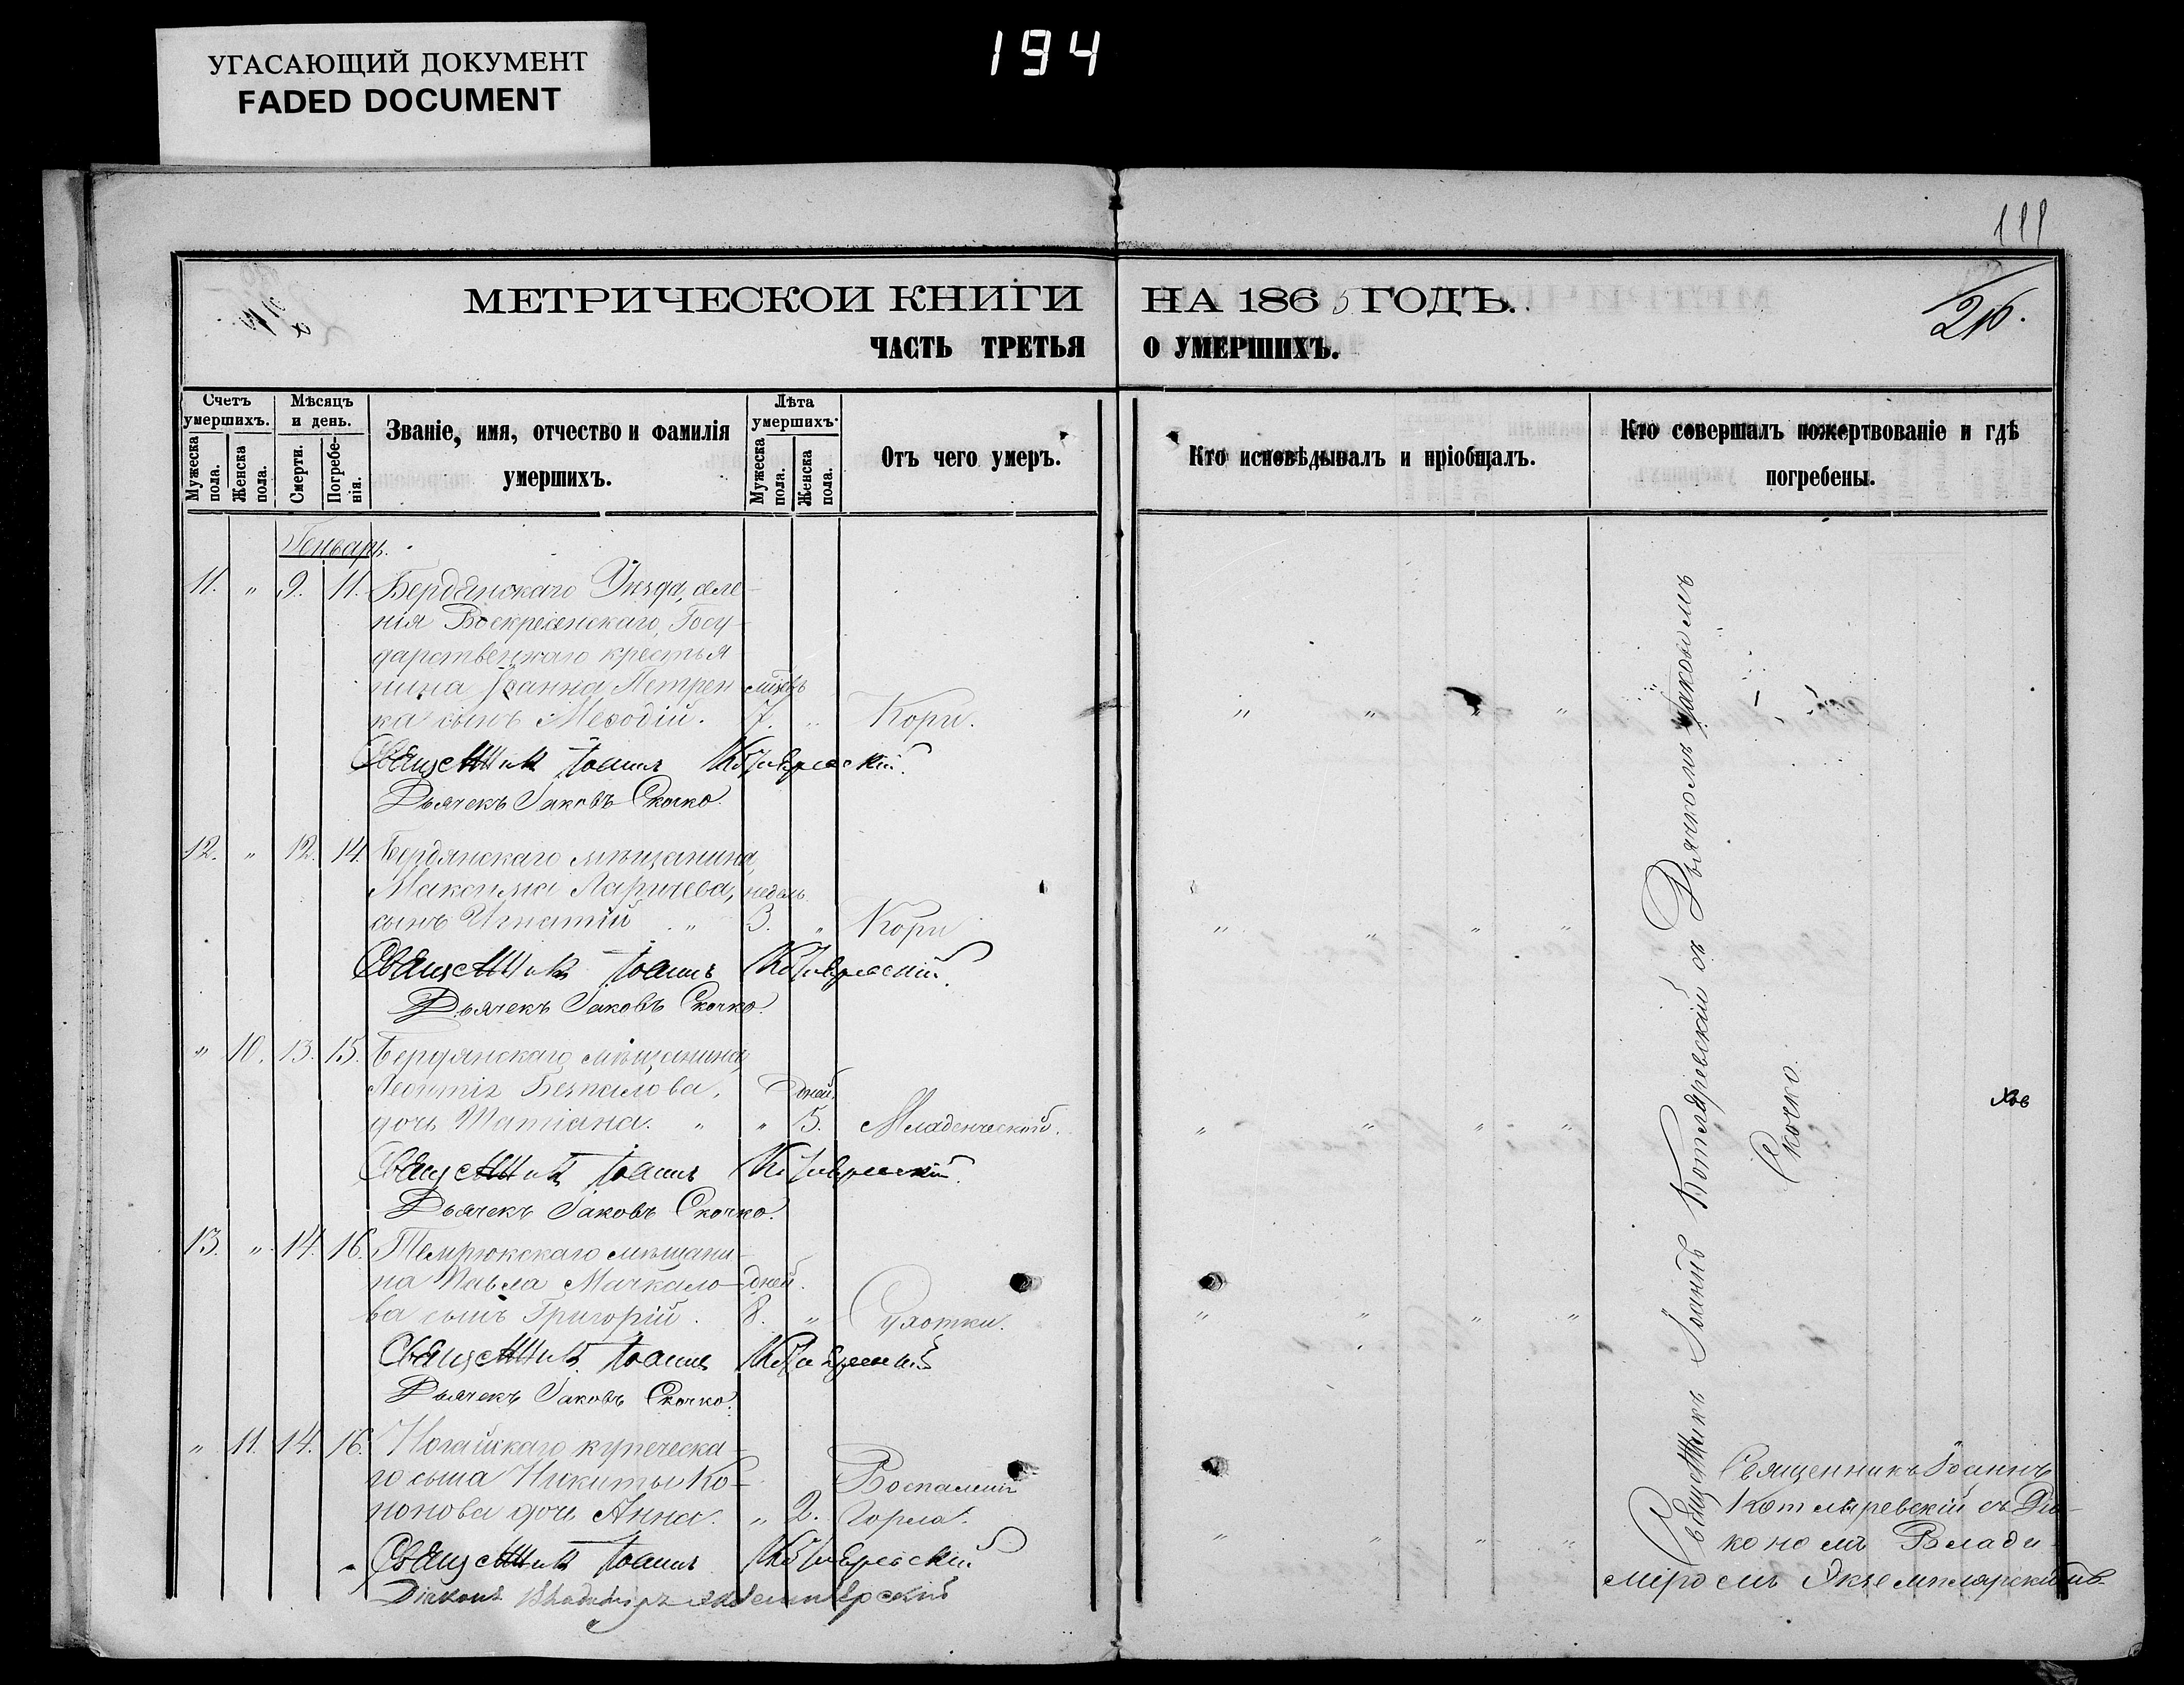 УГАСАЮЩИЙ ДОКУМЕНТ
FADED DOCUMENT
194
111
МЕТРИЧЕСКОИ КНИГИ НА 1865 ГОДЪ.
ЧАСТЬ ТРЕТЬЯ О УМЕРШИХЪ.
Счетъ умершихъ.
Мужеска пола.
Женска пола.
Мѣсяцъ и день.
Смерти.
Погребенія.
Званіе, имя, отчество и фамилія
умершихъ.
Лѣта умершихъ.
Мужеска пола.
Женска пола.
Отъ чего умеръ.
Кто исповѣдывалъ и пріобщалъ.
Кто совершалъ пожертвованіе и гдѣ
погребены.
Генварь.
11. " 9. 11. Бердянскаго Уѣзда, селе-
нія Воскресенскаго, Госу-
дарственнаго крестья
нина Іоанна Петрен
ка сынъ Меѳодій. 7. " Кори.
Священникъ Іоаннъ Котляревскій.
Дьячекъ Іаковъ Скочко.
12. " 12. 14. Бердянскаго мѣщанина
Максима Ларичева, недѣль
сынъ Игнатій " 3. " Кори
Священникъ Іоаннъ Котляревскій.
Дьячекъ Іаковъ Скочко.
" 10. 13. 15. Бердянскаго мѣщанина
Леонтія дней.
дочь Татіана. " " 5. Младенческой.
Священникъ Іоаннъ Котляревскій.
Дьячекъ Іаковъ Скочко.
13. " 14. 16. Темрюкскаго мѣщани-
на Павла Мачкало- дней.
ва сынъ Григорій. 8. " Сухотки.
Священникъ Іоаннъ Котляревскій
Дьячекъ Іаковъ Скочко.
" 11. 14. 16. Ногайскаго купеческа-
го сына Никиты Ко- Воспаленія
нонова дочь Анна. " 2. Горла.
Священникъ Іоаннъ Котляревскій
Діаконъ Владиміръ Экземплярскій
Священникъ Іоаннъ Котляревскій съ Дьячкомъ Іаковомъ
Скочко.
Священникъ Іоаннъ
Котляревскій съ Діа-
кономъ Влади
міромъ Экземплярскимъ.